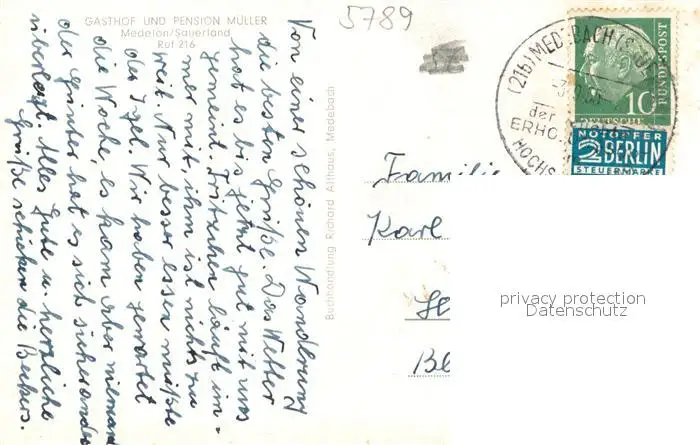 GASTHOF UND PENSION MÜLLER
Medelon/Sauerland
Ruf 216
5789
Von einer schönen Wanderung
die besten Grüße. Das Wetter
hat es bis jetzt gut mit uns
gemeint. Fritzchen läuft im-
mer mit, ihm ist nichts zu
weit. Nur besser essen müßte
der Igel. Wir haben gewartet
die Woche, es kam aber niemand
der Günther hat es sich sicher anders
überlegt. Alles Gute u. herzliche
Grüße schicken die Beckers.
Buchhandlung Richard Althaus, Medebach
(21b) MEDEBACH
der
ERHO
HOCHS
BUNDESPOST
10
DEUTSCHE
NOTOPFER
2 BERLIN
STEUERMARKE
Familie
Karl
privacy protection
Datenschutz